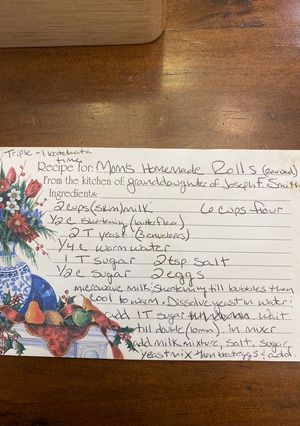 Triple - 1 batch at a
time
Recipe for: Mom's Homemade Rolls (revised)
From the kitchen of: granddaughter of Joseph F. Smith
Ingredients:
2 cups (skim) milk 6 cups flour
1/2 c shortening (butter flavor)
2 T yeast (3 envelopes)
1/4 c warm water
1 T sugar 2 tsp salt
1/2 c sugar 2 eggs
microwave milk, shortening till bubbles then
cool to warm. Dissolve yeast in water;
add 1 T sugar wait
till double (10 min). In mixer
add milk mixture, salt, sugar,
yeast mix then beat eggs & add.